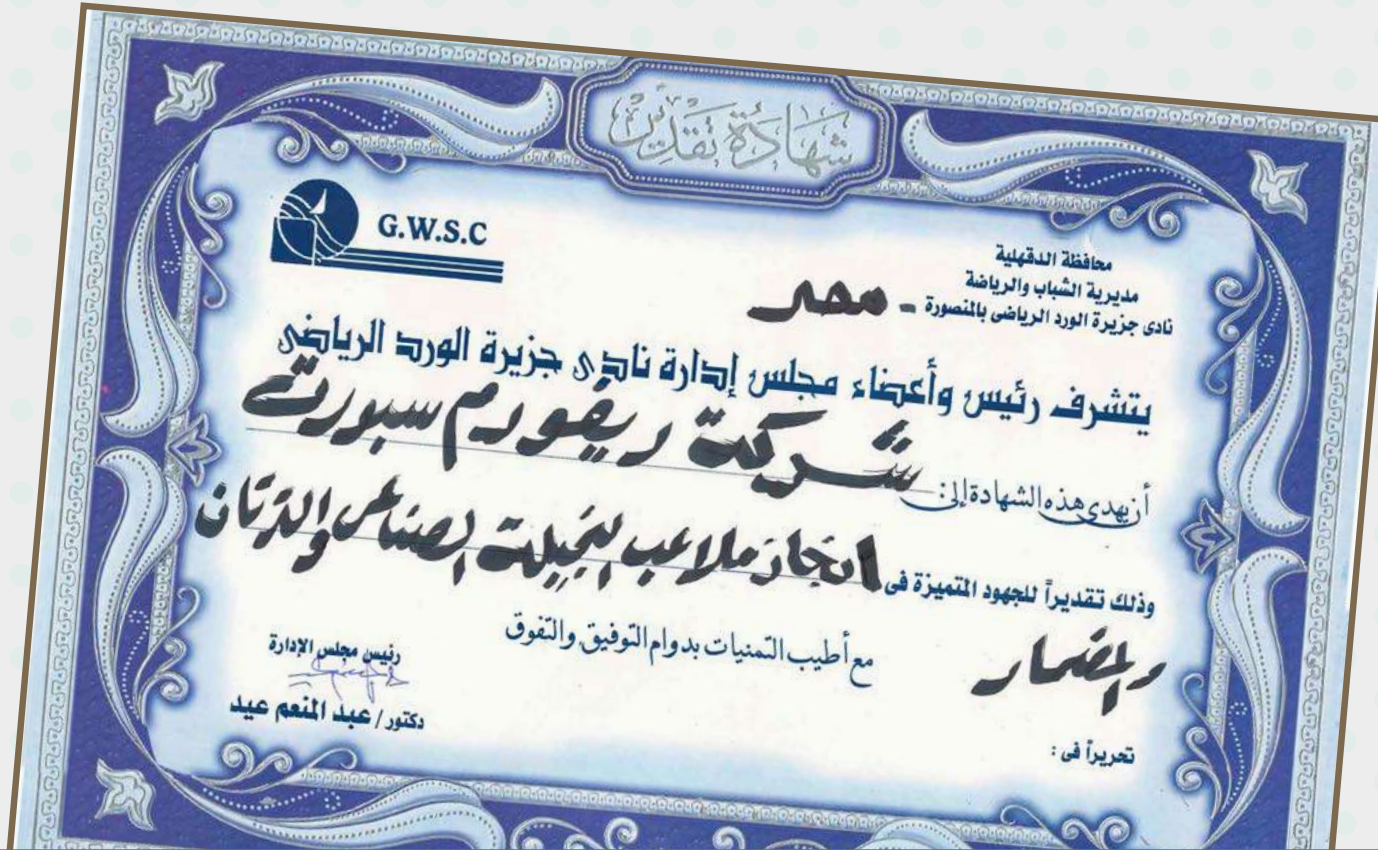 شهادة تقدير
G.W.S.C
محافظة الدقهلية
مديرية الشباب والرياضة
نادى جزيرة الورد الرياضى بالمنصورة - مصر
يتشرف رئيس وأعضاء مجلس إدارة نادى جزيرة الورد الرياضى
أن يهدى هذه الشهادة إلى: شركة ريفورم سبورت
وذلك تقديراً للجهود المتميزة فى انجاز ملاعب النجيلة الصناعى والترتان
والمضمار
مع أطيب التمنيات بدوام التوفيق والتفوق
رئيس مجلس الإدارة
دكتور / عبد المنعم عيد
تحريراً فى :